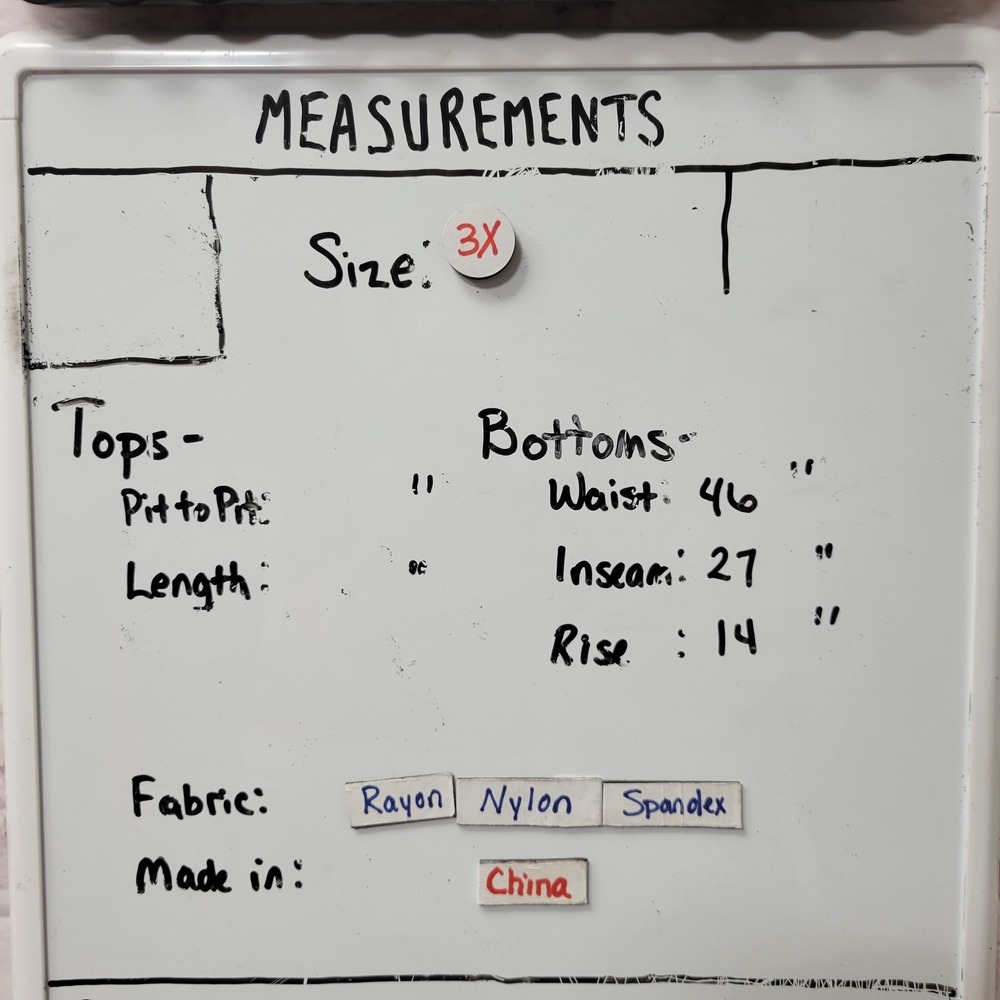 MEASUREMENTS
Size: 3X
Tops-
Pit to Pit: "
Length: "
Bottoms-
Waist: 46 "
Inseam: 27 "
Rise : 14 "
Fabric: Rayon Nylon Spandex
Made in: China